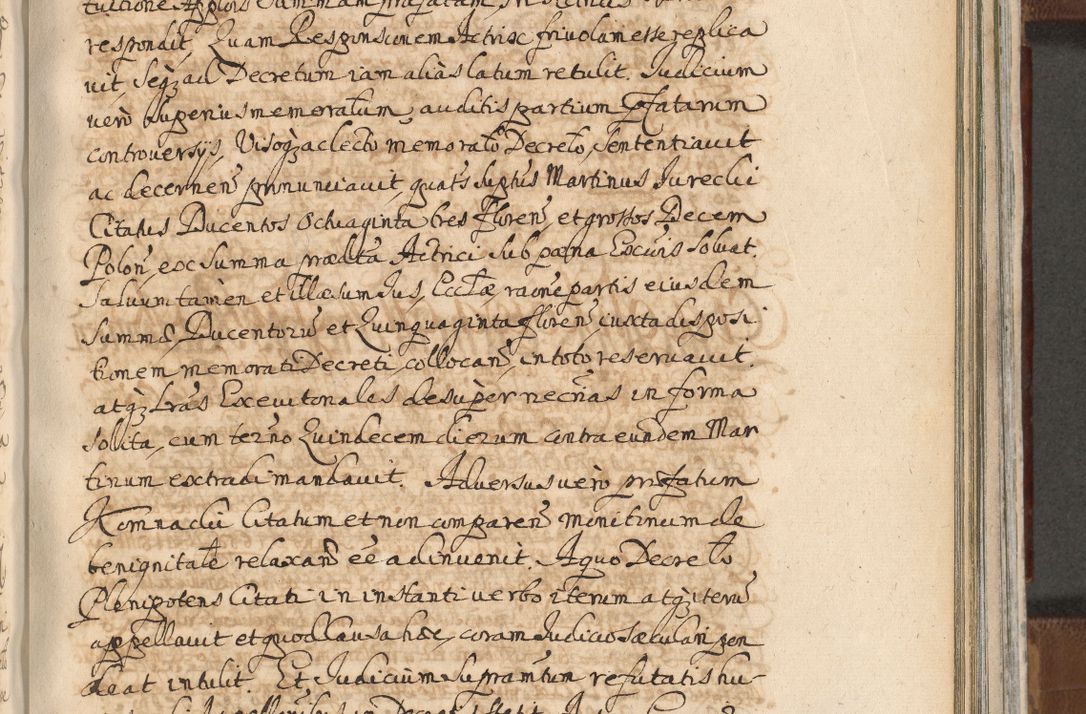 respondit, Quam Responsionem Actrix frivolam esse replica
vit, seqz ad Decretum iam alias latum retulit. Iudicium
vero superius memoratum, auditis partium Pfatarum
controversijs, Visoqz ac lecto memorato Decreto, Sententiavit
ac decernen pronunciavit, quats suptus Martinus Jurecki
Citatus Ducentos Octuaginta tres floren et grossos Decem
Polon, ex summa prædicta Actrici sub pæna Excōnis solvat.
Salvum tamen et illæsum Ius, Ecclæ, raōne partis eiusdem
summæ, Ducentoru et Quinquaginta floren iuxta disposi
tionem memorati Decreti, collocan, in toto reservavit.
atqz Lras Executionales desuper necrias in forma
solita, cum termo Quindecem dierum contra eundem Mar
tinum extradi mandavit. Adversus vero prfatum
Komnacki Citatum et non comparen monitinum de
benignitate relaxan eē adinvenit. A quo Decreto
Plenipotens Citati in instanti verbo iterum atqz iteru
appellavit et quod causa hæc, coram Iudicio sæculari pen
deat intulit. Et Iudicium supramtum refutatis hu-